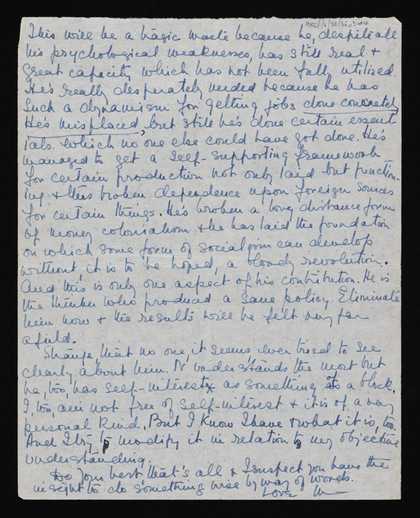 This will be a basic waste because he, despite all
his psychological weaknesses, has still real &
great capacity which has not been fully utilised.
He's really desperately needed because he has
such a dynamism for getting jobs done concretely
He's misplaced, but still he's done certain essent-
ials which no one else could have got done. He's
managed to get a self-supporting framework
for certain production not only laid but function-
ing & thus broken dependence upon foreign sources
for certain things. He's broken a long distance form
of money colonialism & he has laid the foundation
on which some form of socialism can develop
without, it is to be hoped, a bloody revolution.
And this is only one aspect of his contribution. He is
the thinker who produced a sane policy. Eliminate
him now & the results will be felt very far
afield.
Strange that no one it seems ever tried to see
clearly about him. N understands the most but
he, too, has self-interest as something of a block.
I, too, am not free of self-interest & it is of a very
personal kind, But I know I have & what it is, too.
And I try to modify it in relation to my objective
understanding.
Do your best that's all & I suspect you have the
insight to do something wise by way of words.
Love